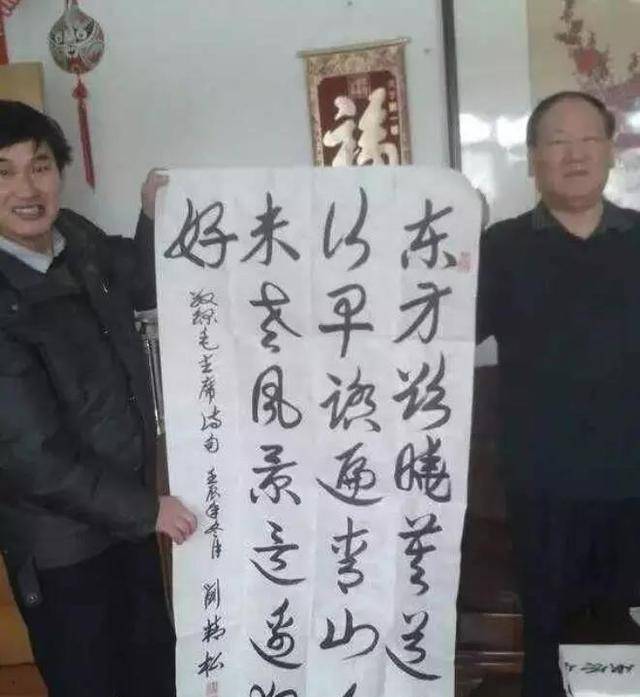 福
东方欲晓莫道
行早踏遍青山人
未老风景这边独
好
敬录毛主席诗句 壬辰年冬月 刘精松